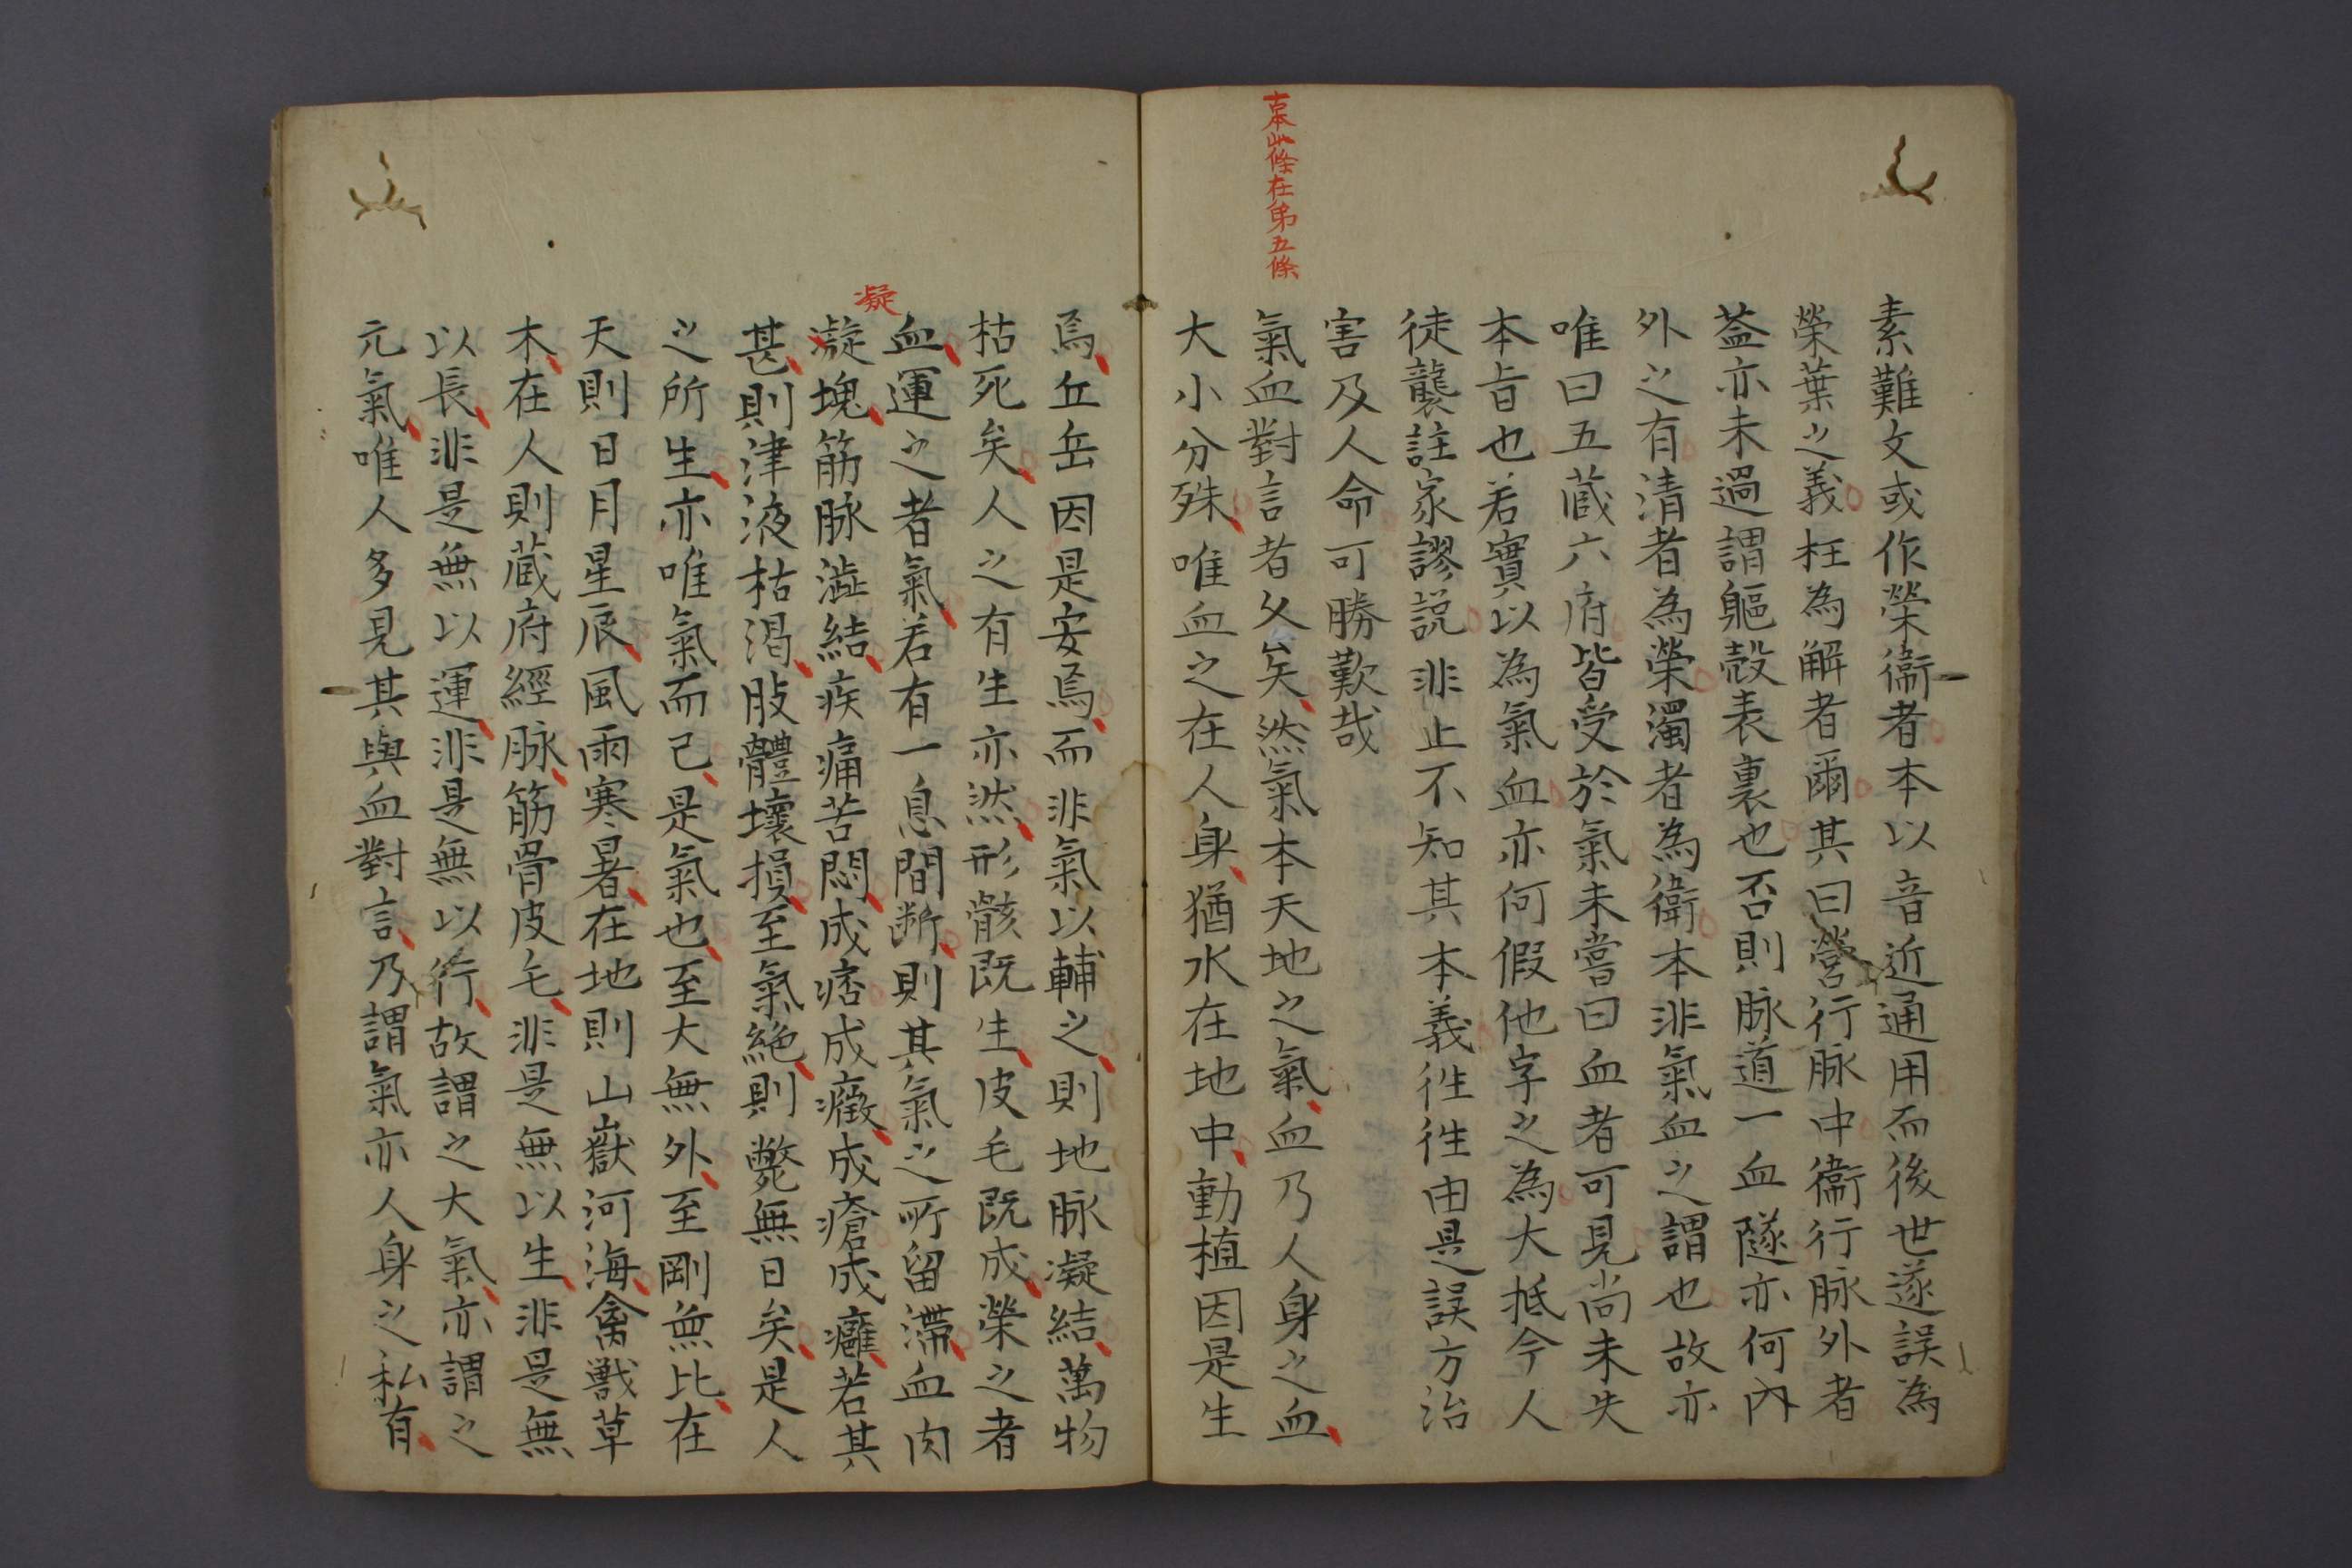 素難文或作榮衞者本以音近通用而後世遂誤為
榮葉之義枉為解者爾其曰營行脉中衞行脉外者
葢亦未過謂軀殼表裏也否則脉道一血隧亦何內
外之有清者為榮濁者為衞本非氣血之謂也故亦
唯曰五蔵六府皆受於氣未嘗曰血者可見尚未失
本旨也若實以為氣血亦何假他字之為大抵今人
徒襲註家謬説非止不知其本義徃徃由是誤方治
害及人命可勝歎哉
古本此條在第五條
氣血對言者久矣然氣本天地之氣血乃人身之血
大小分殊唯血之在人身猶水在地中動植因是生
焉丘岳因是安焉而非氣以輔之則地脉凝結萬物
枯死矣人之有生亦然形骸既生皮毛既成榮之者
血運之者氣若有一息間断則其氣之所留滯血肉
凝
凝塊筋脉澁結疾痛苦悶成痞成癥成瘡成癰若其
甚則津液枯渴肢體壞損至氣絶則斃無日矣是人
之所生亦唯氣而已是氣也至大無外至剛無比在
天則日月星辰風雨寒暑在地則山嶽河海禽獣草
木在人則蔵府經脉筋骨皮毛非是無以生非是無
以長非是無以運非是無以行故謂之大氣亦謂之
元氣唯人多見其與血對言乃謂氣亦人身之私有